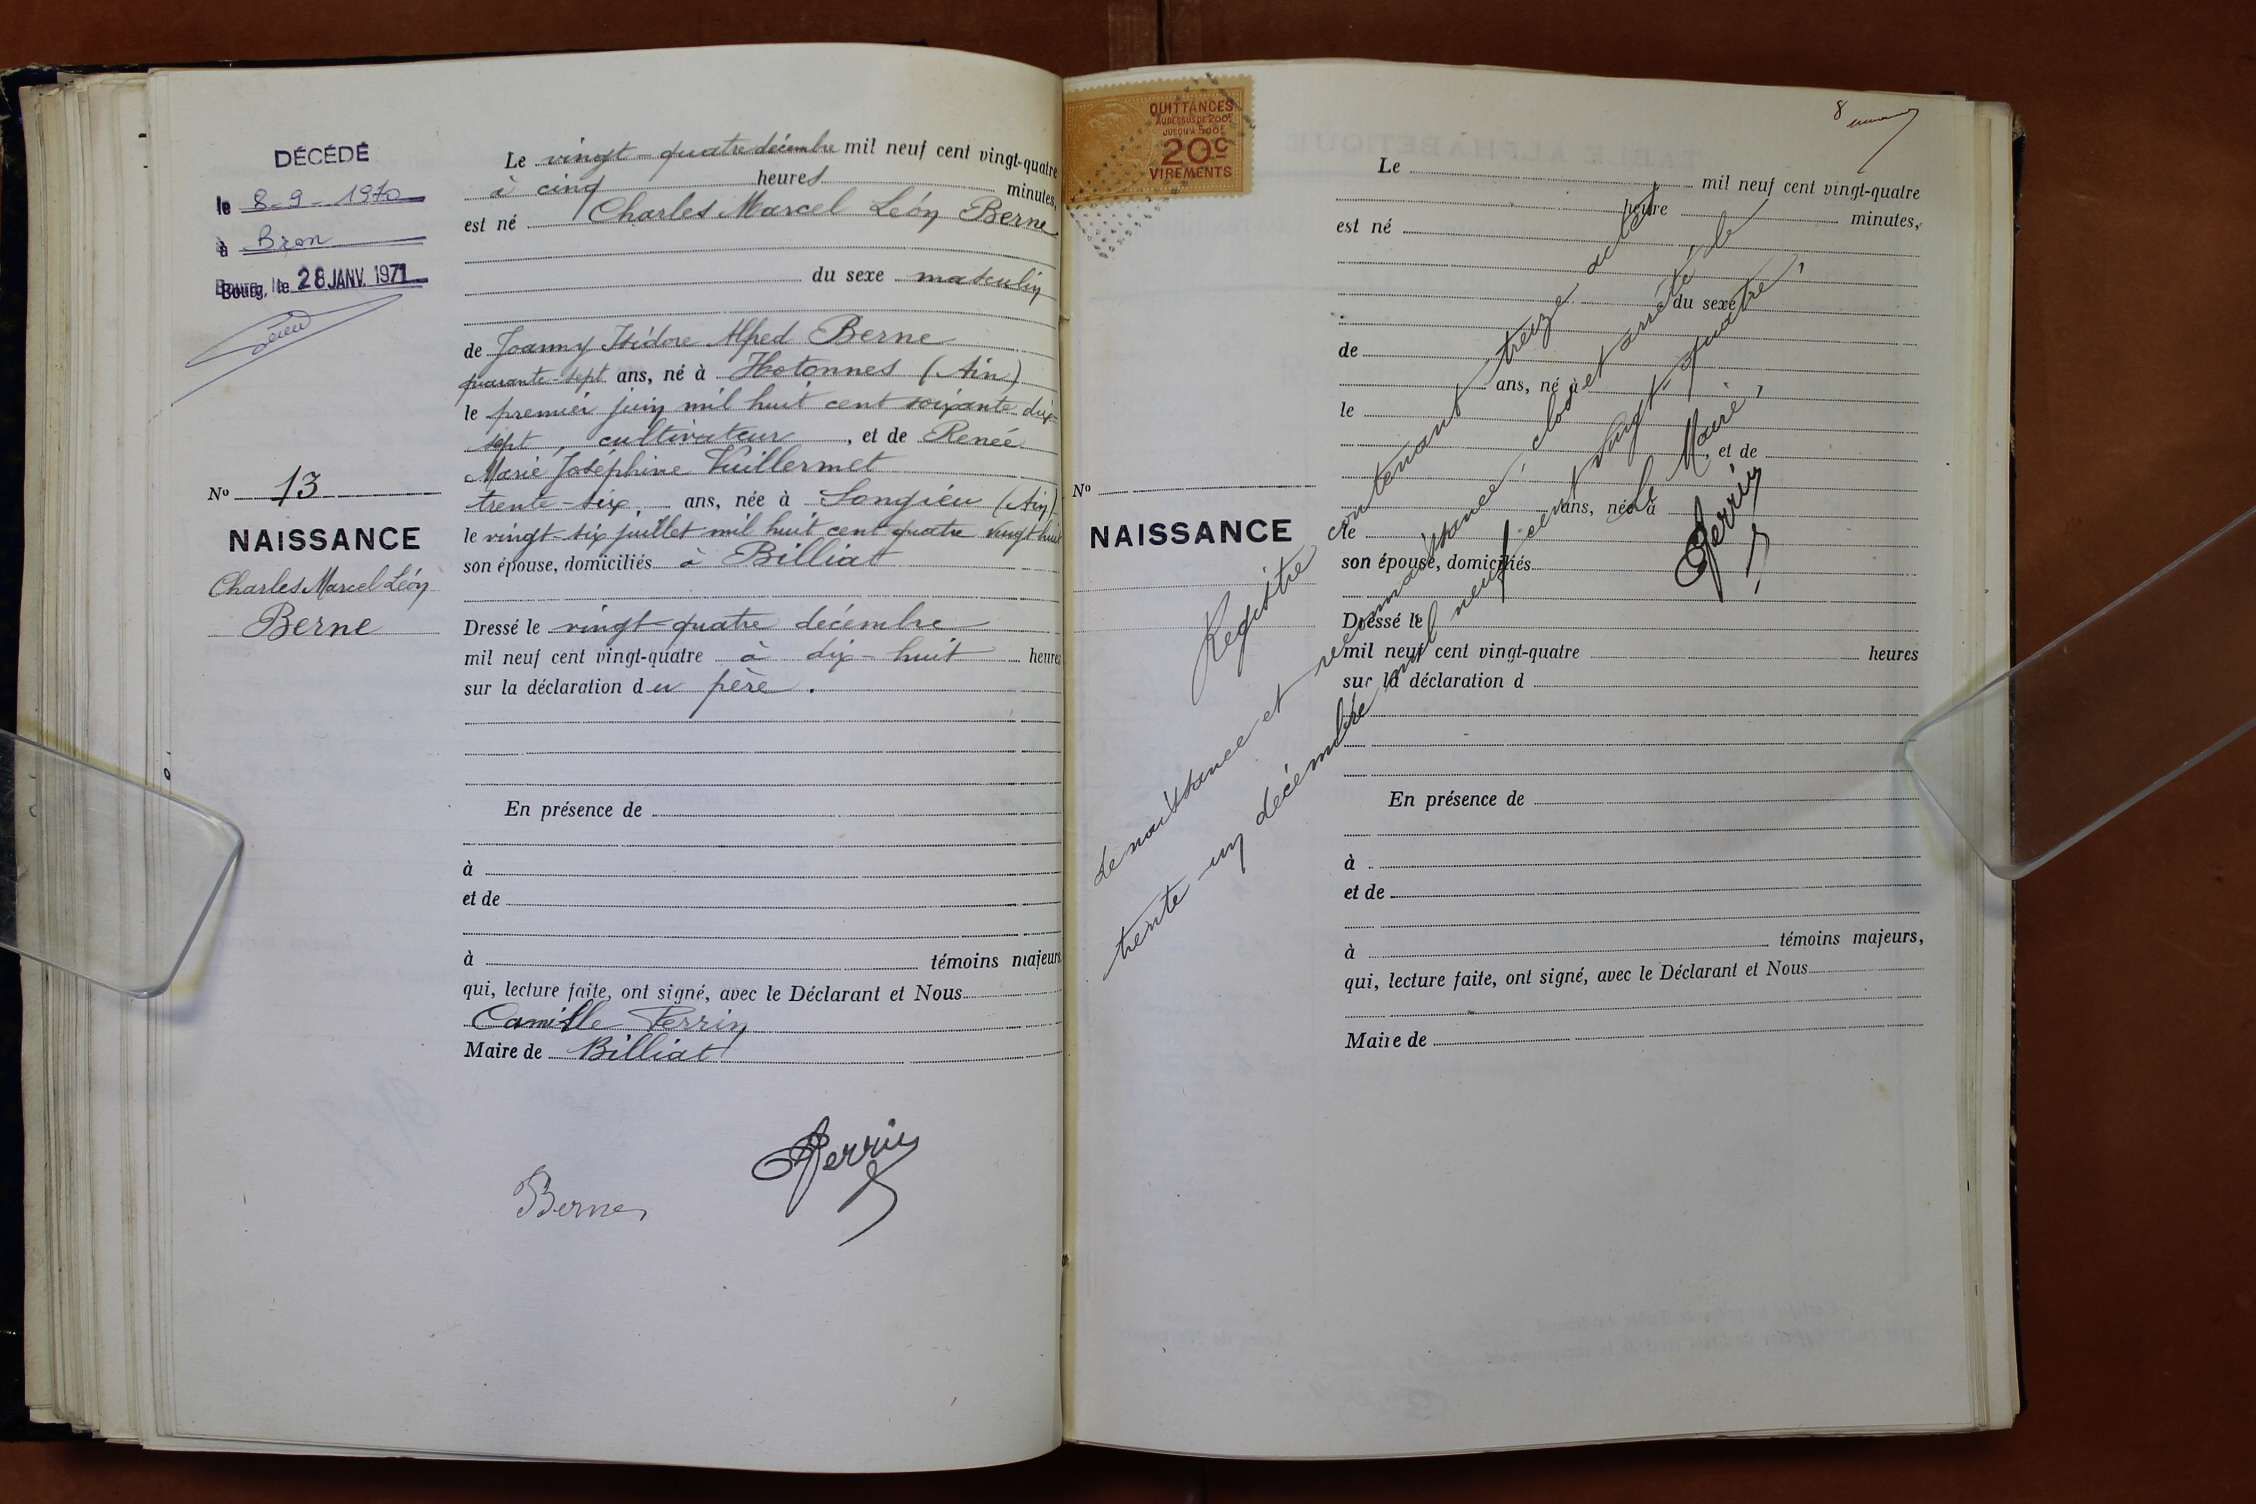 DÉCÉDÉ
le 8-9-1970
à Bron
Bourg, le 28 JANV. 1971
No 13
NAISSANCE
Charles Marcel Léon
Berne
Le vingt-quatre décembre mil neuf cent vingt-quatre
à cinq heures minutes,
est né Charles Marcel Léon Berne
du sexe masculin
de Joanny Isidore Alfred Berne
quarante-sept ans, né à Hotonnes (Ain)
le premier juin mil huit cent soixante dix-
sept, cultivateur, et de Renée
Marie Joséphine Vuillermet
trente-six, ans, née à Songieu (Ain)
le vingt-six juillet mil huit cent quatre vingt huit
son épouse, domiciliés à Billiat
Dressé le vingt-quatre décembre
mil neuf cent vingt-quatre à dix-huit heures
sur la déclaration du père.
En présence de
à
et de
à témoins majeurs
qui, lecture faite, ont signé, avec le Déclarant et Nous
Camille Perrin
Maire de Billiat
Berne
Perrin
QUITTANCES
AU DESSUS DE 200F
JUSQU'A 500F
20c
VIREMENTS
8
No
NAISSANCE
Le mil neuf cent vingt-quatre
heure minutes,
est né
du sexe
de
ans, né à
le
, et de
ans, née à
le
son épouse, domiciliés
Dressé le
mil neuf cent vingt-quatre heures
sur la déclaration d
En présence de
à
et de
à témoins majeurs,
qui, lecture faite, ont signé, avec le Déclarant et Nous
Maire de
Registre contenant treize actes
de naissance et reconnaissance, clos et arrêté, le
trente-un décembre mil neuf cent vingt-quatre,
Le Maire,
Perrin